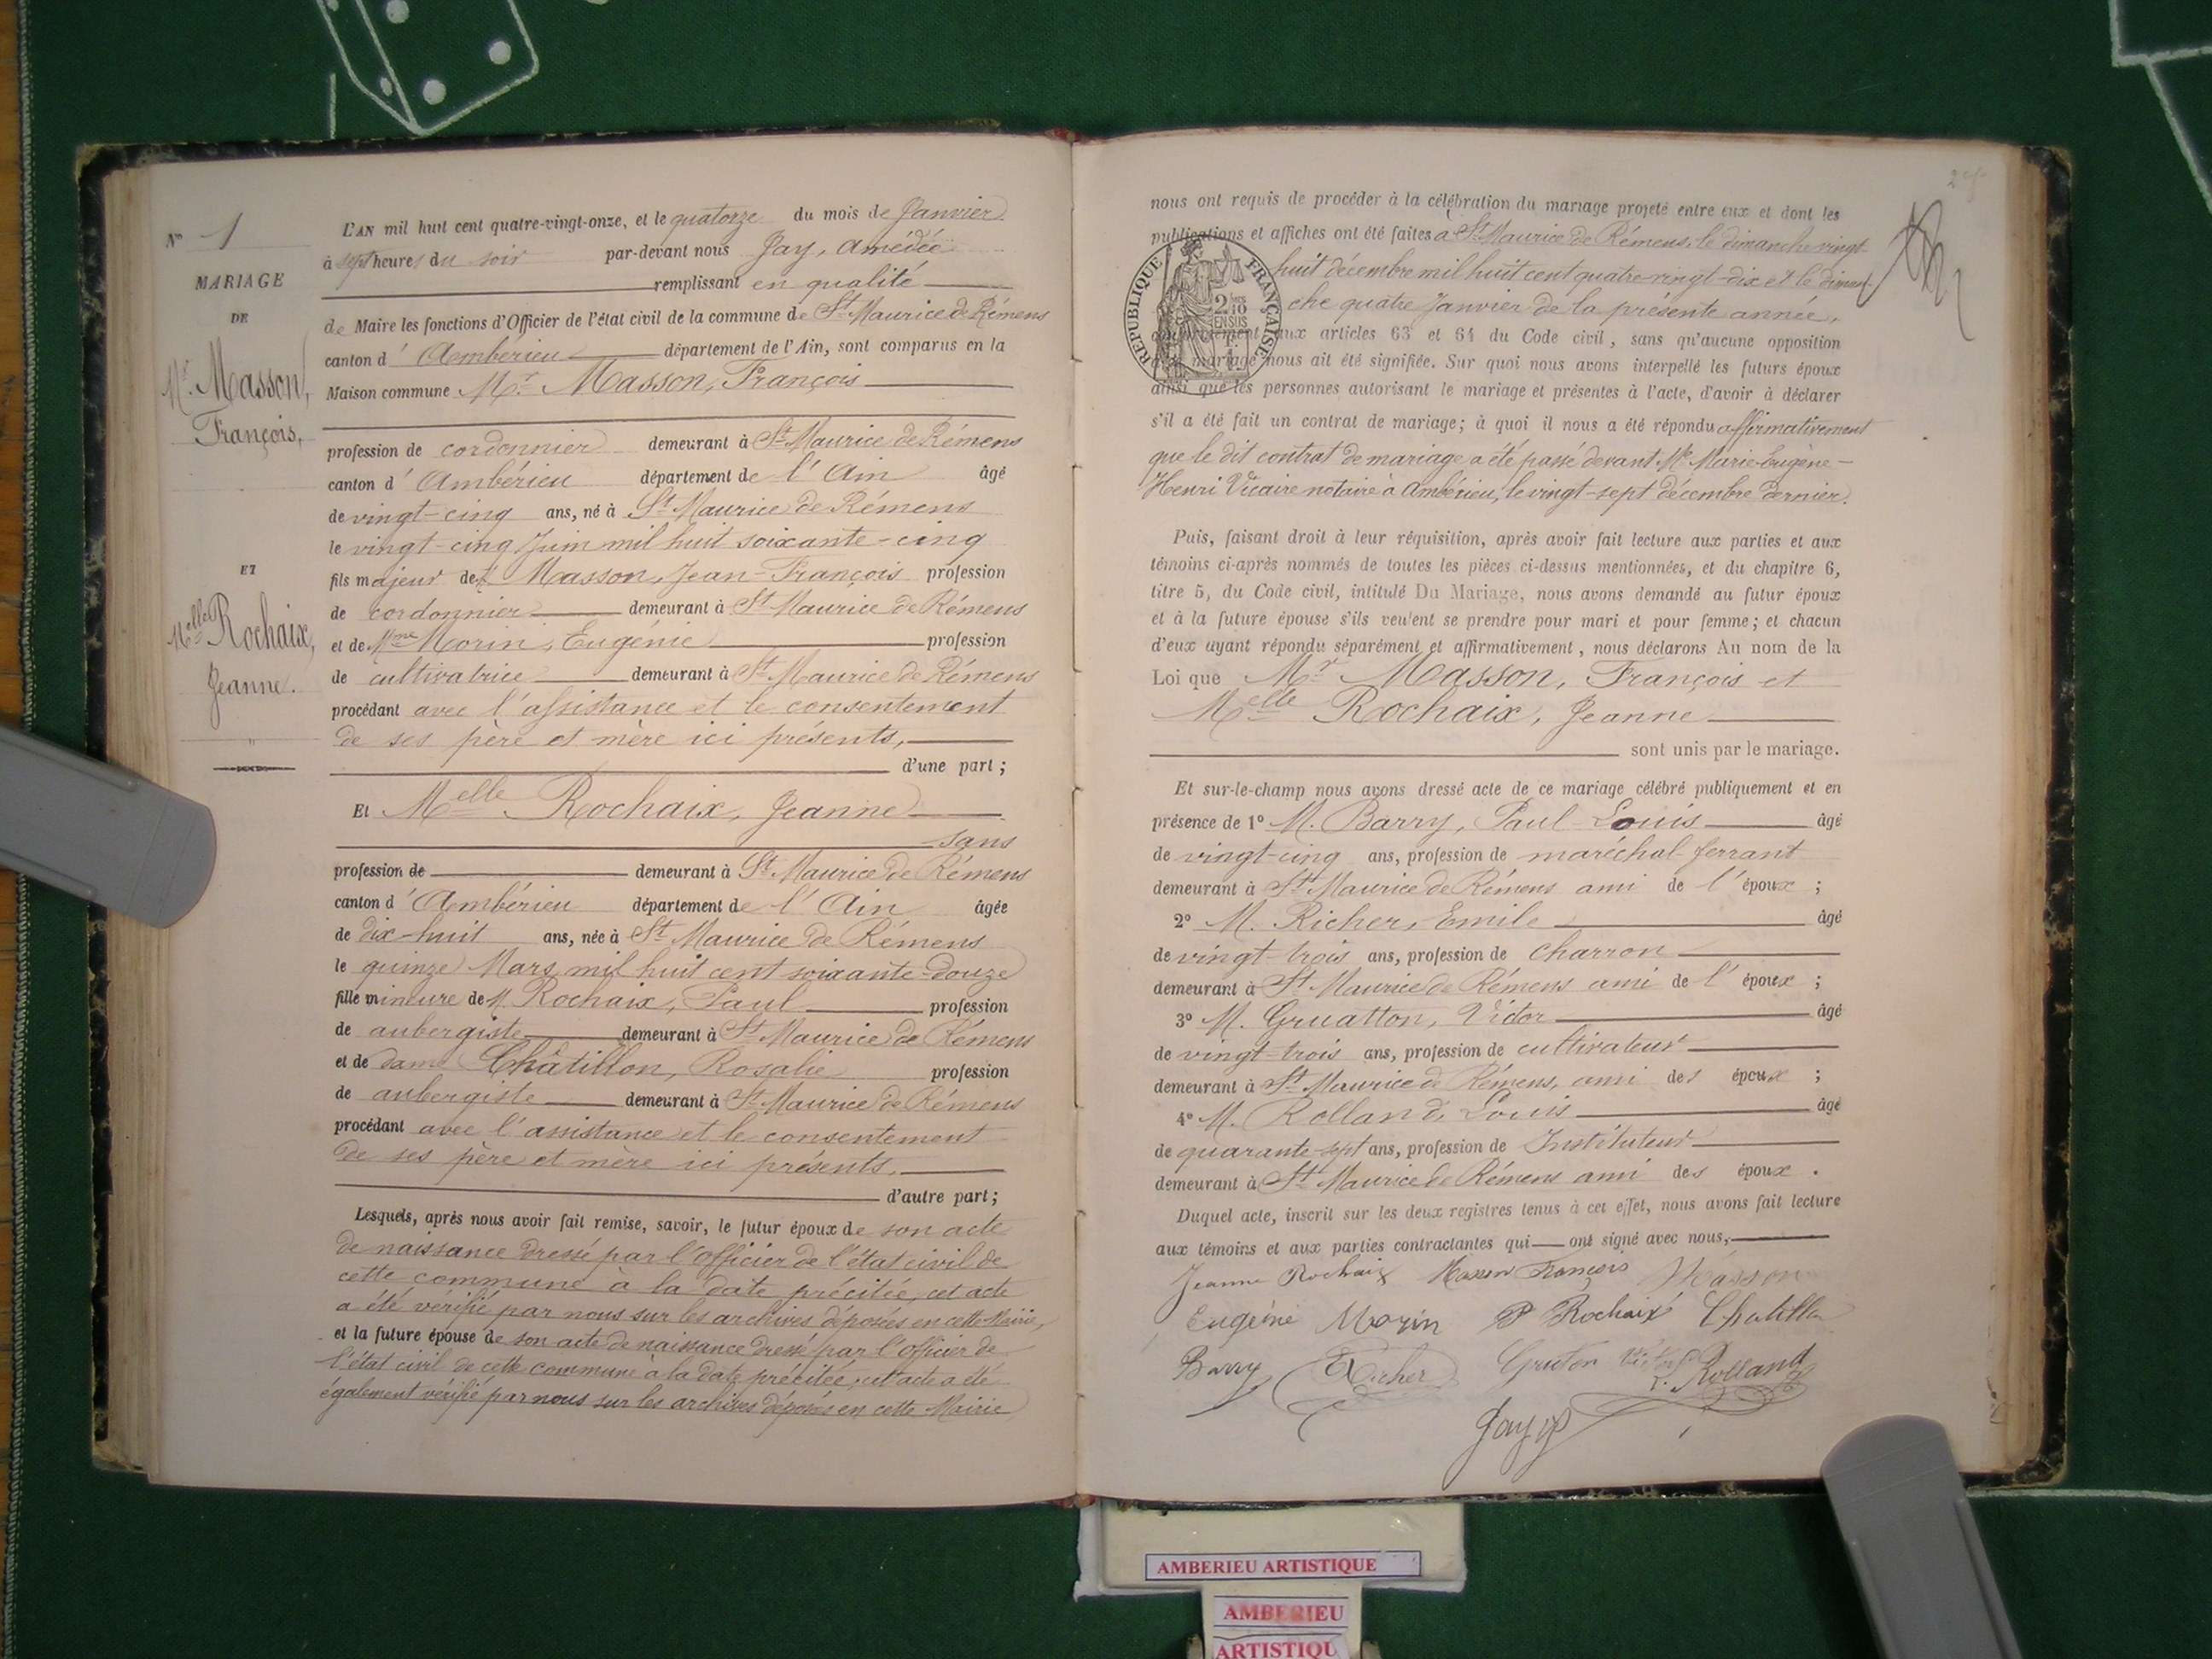 N° 1
MARIAGE
DE
Mr. Masson,
François,
ET
Melle Rochaix,
Jeanne.
L'AN mil huit cent quatre-vingt-onze, et le quatorze du mois de Janvier
à sept heures du soir par-devant nous Jay, Amédée
remplissant en qualité
de Maire les fonctions d'Officier de l'état civil de la commune de St Maurice de Rémens
canton d' Ambérieu département de l'Ain, sont comparus en la
Maison commune Mr. Masson, François
profession de cordonnier demeurant à St Maurice de Rémens
canton d' Ambérieu département de l'Ain âgé
de vingt-cinq ans, né à St Maurice de Rémens
le vingt-cinq Juin mil huit soixante-cinq
fils majeur de Masson, Jean-François profession
de cordonnier demeurant à St Maurice de Rémens
et de Mme Morin, Eugénie profession
de cultivatrice demeurant à St Maurice de Rémens
procédant avec l'assistance et le consentement
de ses père et mère ici présents,
d'une part;
Et Melle Rochaix, Jeanne
sans
profession de demeurant à St Maurice de Rémens
canton d' Ambérieu département de l'Ain âgée
de dix-huit ans, née à St Maurice de Rémens
le quinze Mars mil huit cent soixante-douze
fille mineure de M. Rochaix, Paul profession
de aubergiste demeurant à St Maurice de Rémens
et de dame Châtillon, Rosalie profession
de aubergiste demeurant à St Maurice de Rémens
procédant avec l'assistance et le consentement
de ses père et mère ici présents.
d'autre part;
Lesquels, après nous avoir fait remise, savoir, le futur époux de son acte
de naissance dressé par l'officier de l'état civil de
cette commune à la date précitée, cet acte
a été vérifié par nous sur les archives déposées en cette Mairie,
et la future épouse de son acte de naissance dressé par l'officier de
l'état civil de cette commune à la date précitée, cet acte a été
également vérifié par nous sur les archives déposées en cette Mairie
nous ont requis de procéder à la célébration du mariage projeté entre eux et dont les
publications et affiches ont été faites à St Maurice de Rémens, le dimanche vingt-
huit décembre mil huit cent quatre-vingt-dix et le diman-
che quatre Janvier de la présente année,
RÉPUBLIQUE FRANÇAISE
conformément aux articles 63 et 64 du Code civil, sans qu'aucune opposition
mariage nous ait été signifiée. Sur quoi nous avons interpellé les futurs époux
ainsi que les personnes autorisant le mariage et présentes à l'acte, d'avoir à déclarer
s'il a été fait un contrat de mariage; à quoi il nous a été répondu affirmativement
que le dit contrat de mariage a été passé devant Me Marie-Eugène-
Henri Vicaire notaire à Ambérieu, le vingt-sept décembre dernier.
Puis, faisant droit à leur réquisition, après avoir fait lecture aux parties et aux
témoins ci-après nommés de toutes les pièces ci-dessus mentionnées, et du chapitre 6,
titre 5, du Code civil, intitulé Du Mariage, nous avons demandé au futur époux
et à la future épouse s'ils veulent se prendre pour mari et pour femme; et chacun
d'eux ayant répondu séparément et affirmativement, nous déclarons Au nom de la
Loi que Mr Masson, François et
Melle Rochaix, Jeanne
sont unis par le mariage.
Et sur-le-champ nous avons dressé acte de ce mariage célébré publiquement et en
présence de 1° M. Barry, Paul-Louis âgé
de vingt-cinq ans, profession de maréchal-ferrant
demeurant à St Maurice de Rémens ami de l'époux;
2° M. Richer, Emile âgé
de vingt-trois ans, profession de charron
demeurant à St Maurice de Rémens ami de l'époux;
3° M. Gruatton, Victor âgé
de vingt-trois ans, profession de cultivateur
demeurant à St Maurice de Rémens, ami des époux;
4° M. Rolland, Louis âgé
de quarante-sept ans, profession de Instituteur
demeurant à St Maurice de Rémens ami des époux.
Duquel acte, inscrit sur les deux registres tenus à cet effet, nous avons fait lecture
aux témoins et aux parties contractantes qui ont signé avec nous,
Jeanne Rochaix Masson François Masson
Eugénie Morin P Rochaix Chatillon
Barry Richer Gruton Victor L. Rolland
Jay
AMBERIEU ARTISTIQUE
AMBERIEU
ARTISTIQU